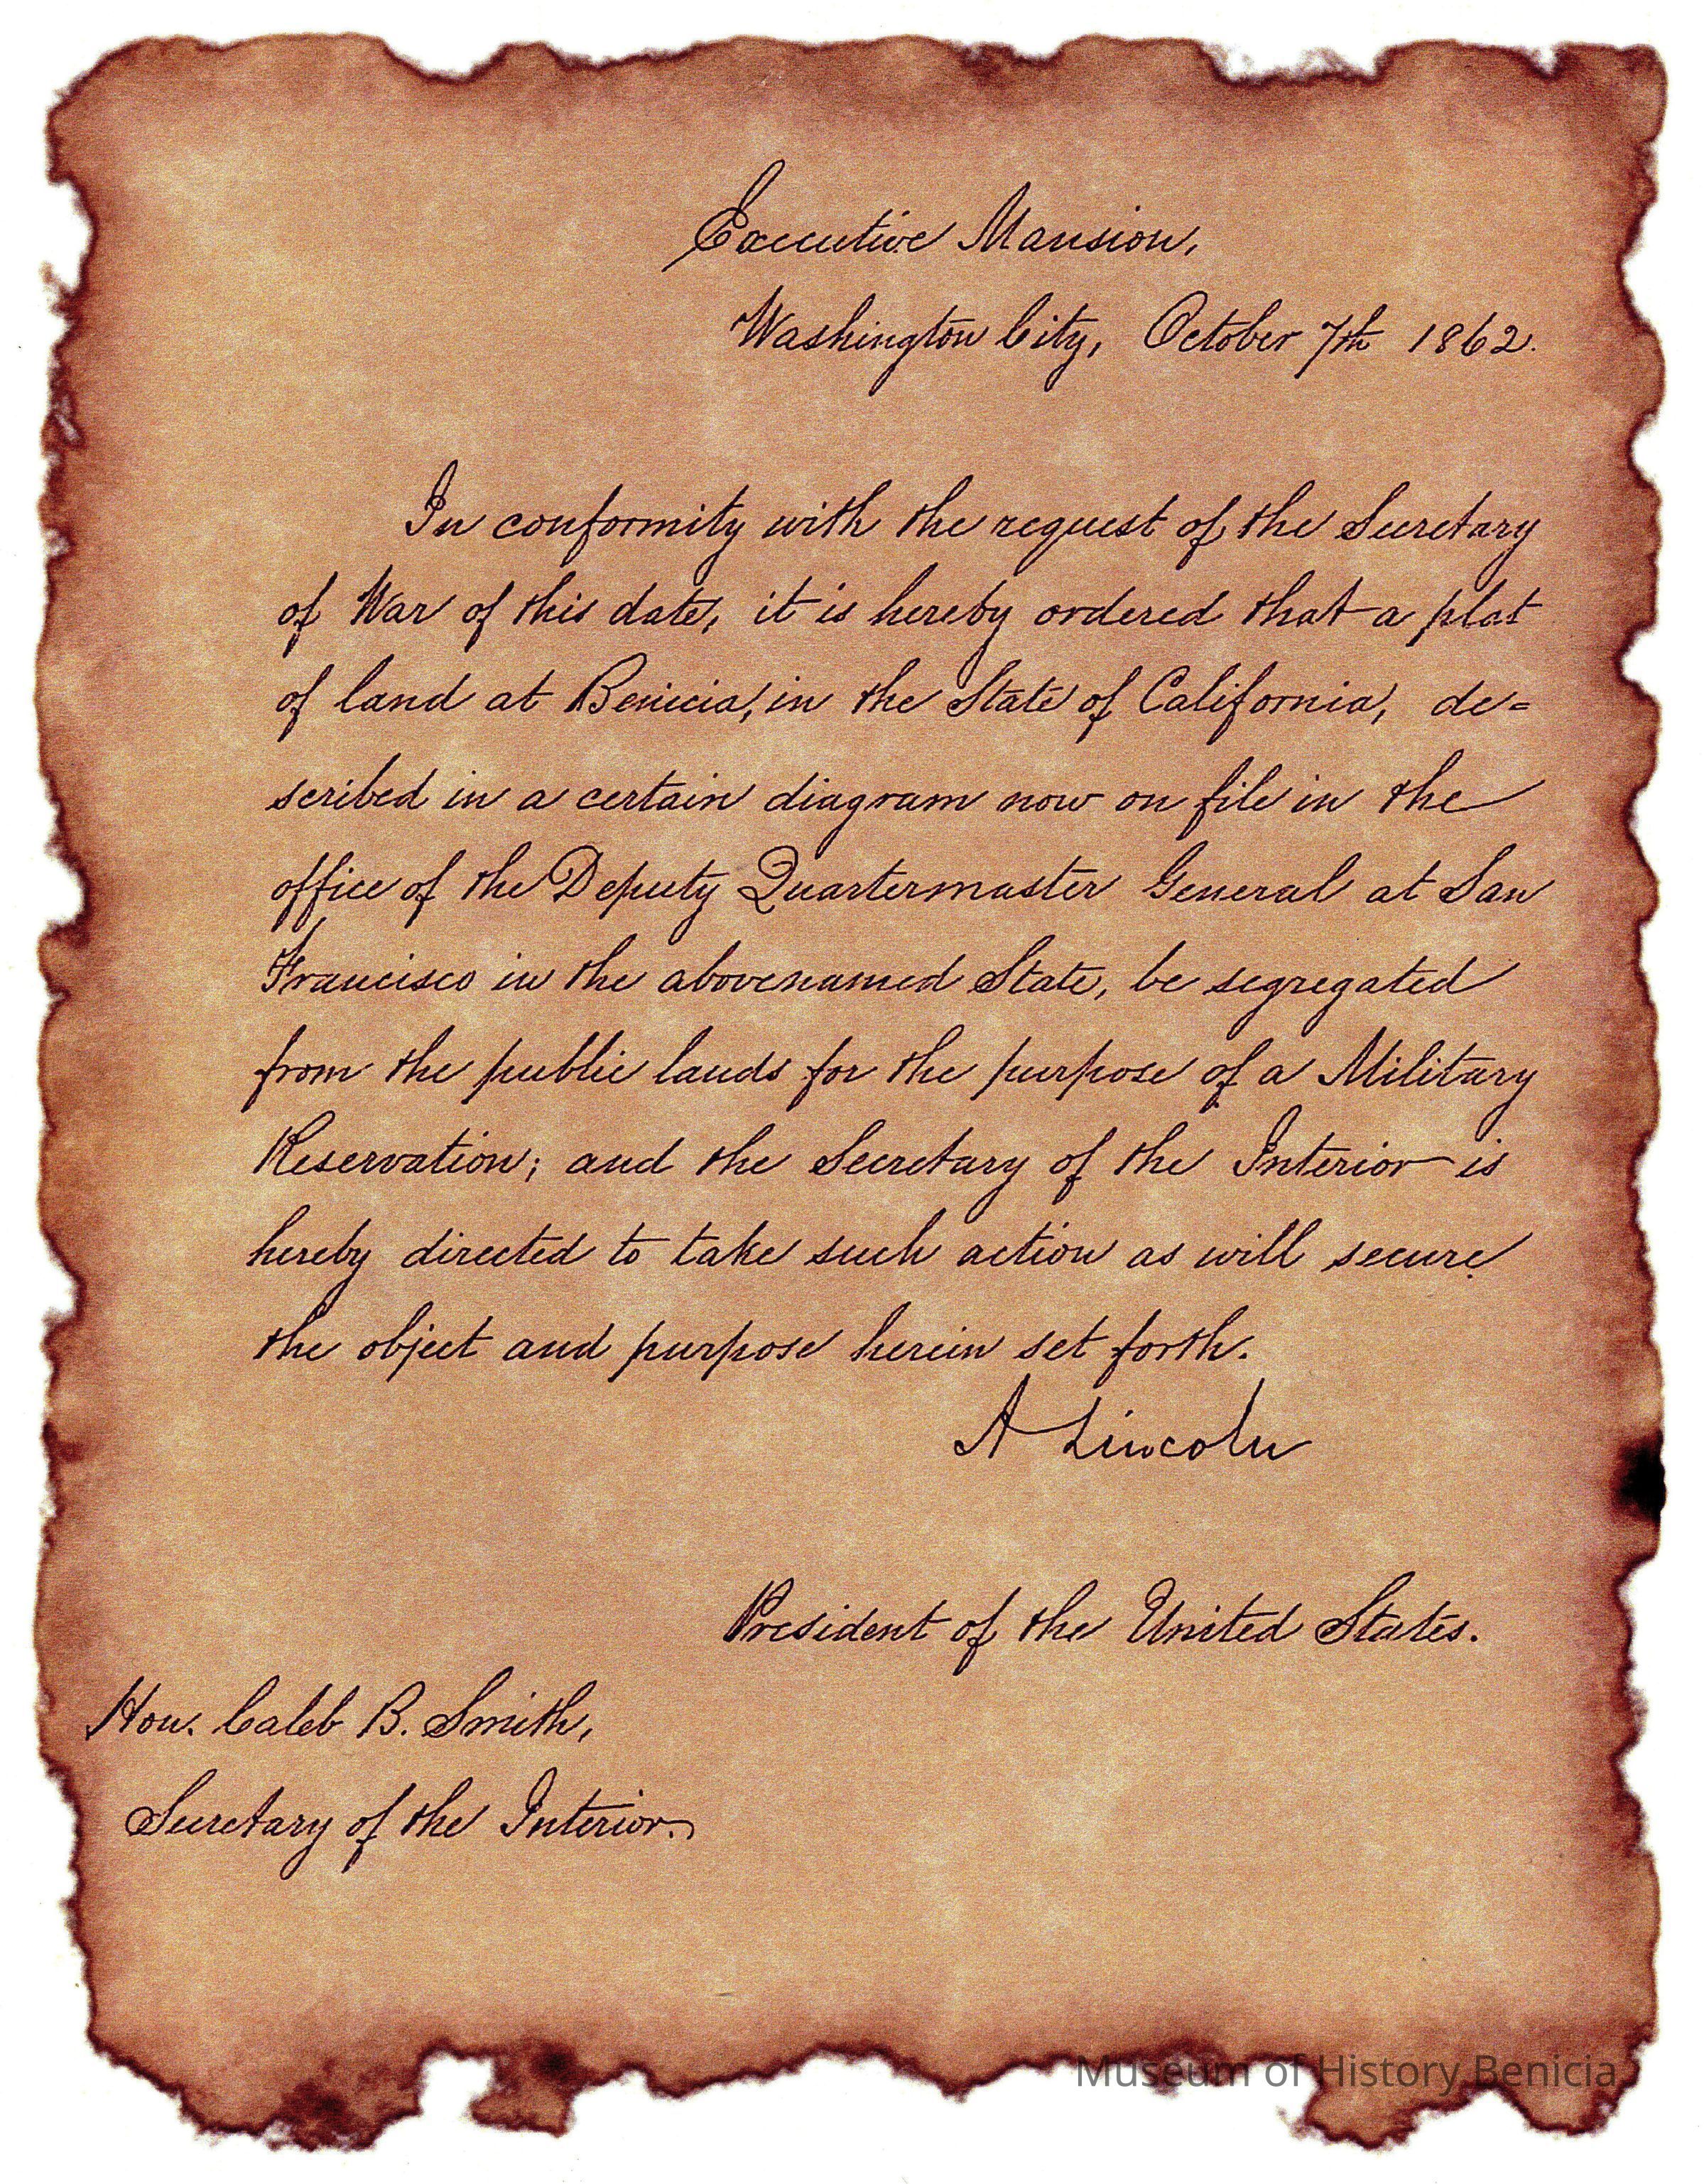 Executive Mansion,
Washington City, October 7th 1862.
In conformity with the request of the Secretary
of War of this date, it is hereby ordered that a plat
of land at Benicia, in the State of California, de=
scribed in a certain diagram now on file in the
office of the Deputy Quartermaster General at San
Francisco in the abovenamed State, be segregated
from the public lands for the purpose of a Military
Reservation; and the Secretary of the Interior is
hereby directed to take such action as will secure
the object and purpose herein set forth.
A Lincoln
President of the United States.
Hon. Caleb B. Smith,
Secretary of the Interior.
Museum of History Benicia